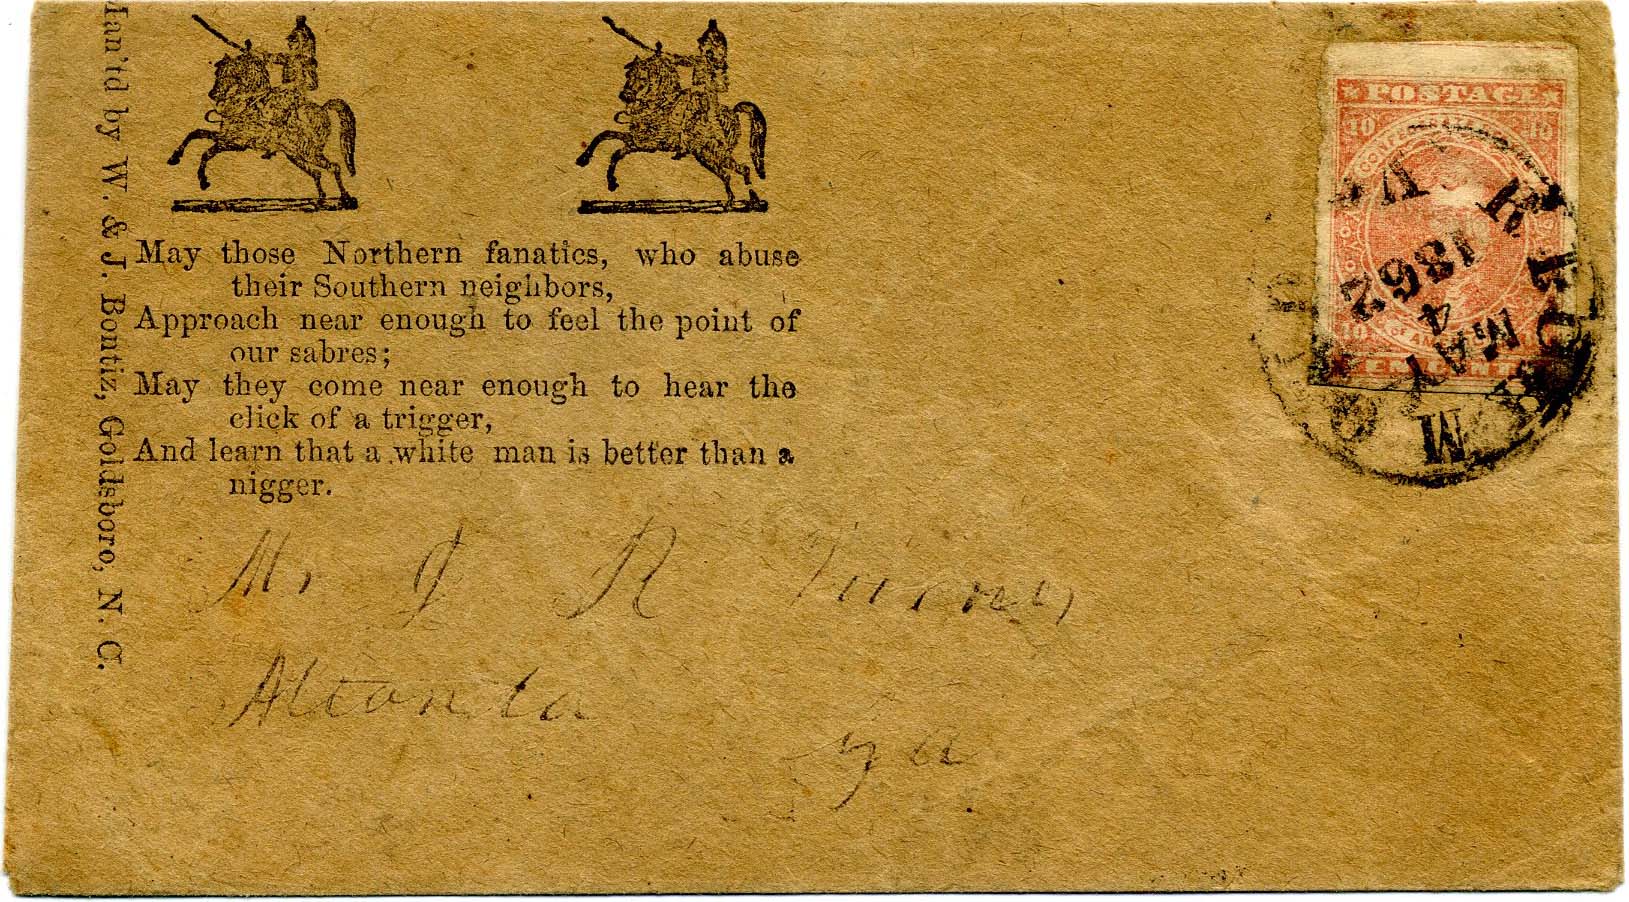 Man'td by W. & J. Bontiz, Goldsboro, N. C.
May those Northern fanatics, who abuse
their Southern neighbors,
Approach near enough to feel the point of
our sabres;
May they come near enough to hear the
click of a trigger,
And learn that a white man is better than a
nigger.
Mr J R Turner
Atlanta
Ga
POSTAGE
10 10
OF
10
TEN CENTS
MAY
4
1862